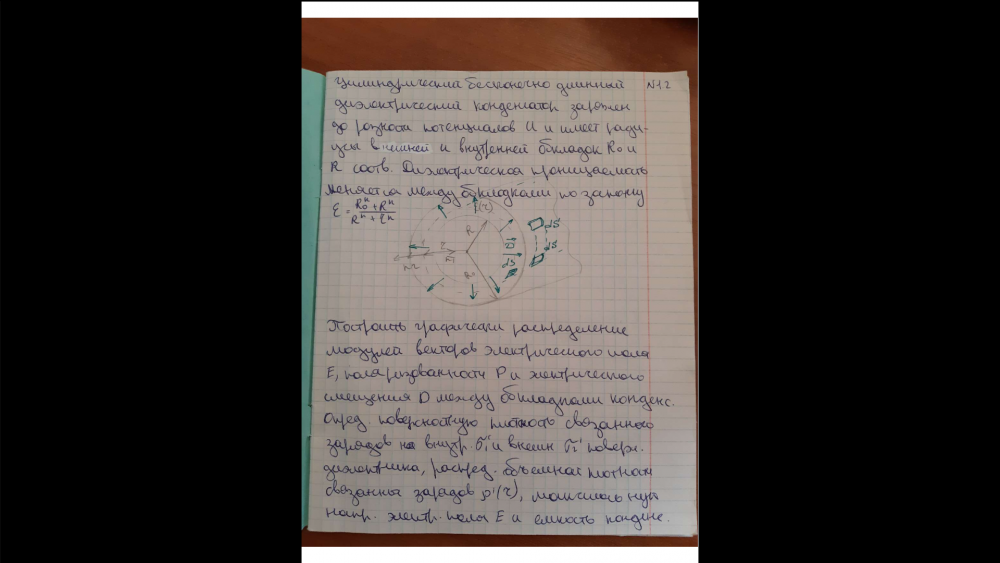 Цилиндрический бесконечно длинный №12
диэлектрический конденсатор заряжен
до разности потенциалов U и имеет ради-
усы внешней и внутренней обкладок R₀ и
R соотв. Диэлектрическая проницаемость
меняется между обкладками по закону
ε = (R₀ⁿ + Rⁿ)/(Rⁿ + rⁿ)
R
R₀
D
dS
dS
dS
Построить графически распределение
модулей векторов электрического поля
E, поляризованности P и электрического
смещения D между обкладками конденс.
Опред. поверхностную плотность связанного
зарядов на внутр. σ₁' и внешн σ₂' поверх.
диэлектрика, распред. объемной плотности
связанных зарядов ρ'(r), максимальную
напр. электр. поля E и емкость конденс.